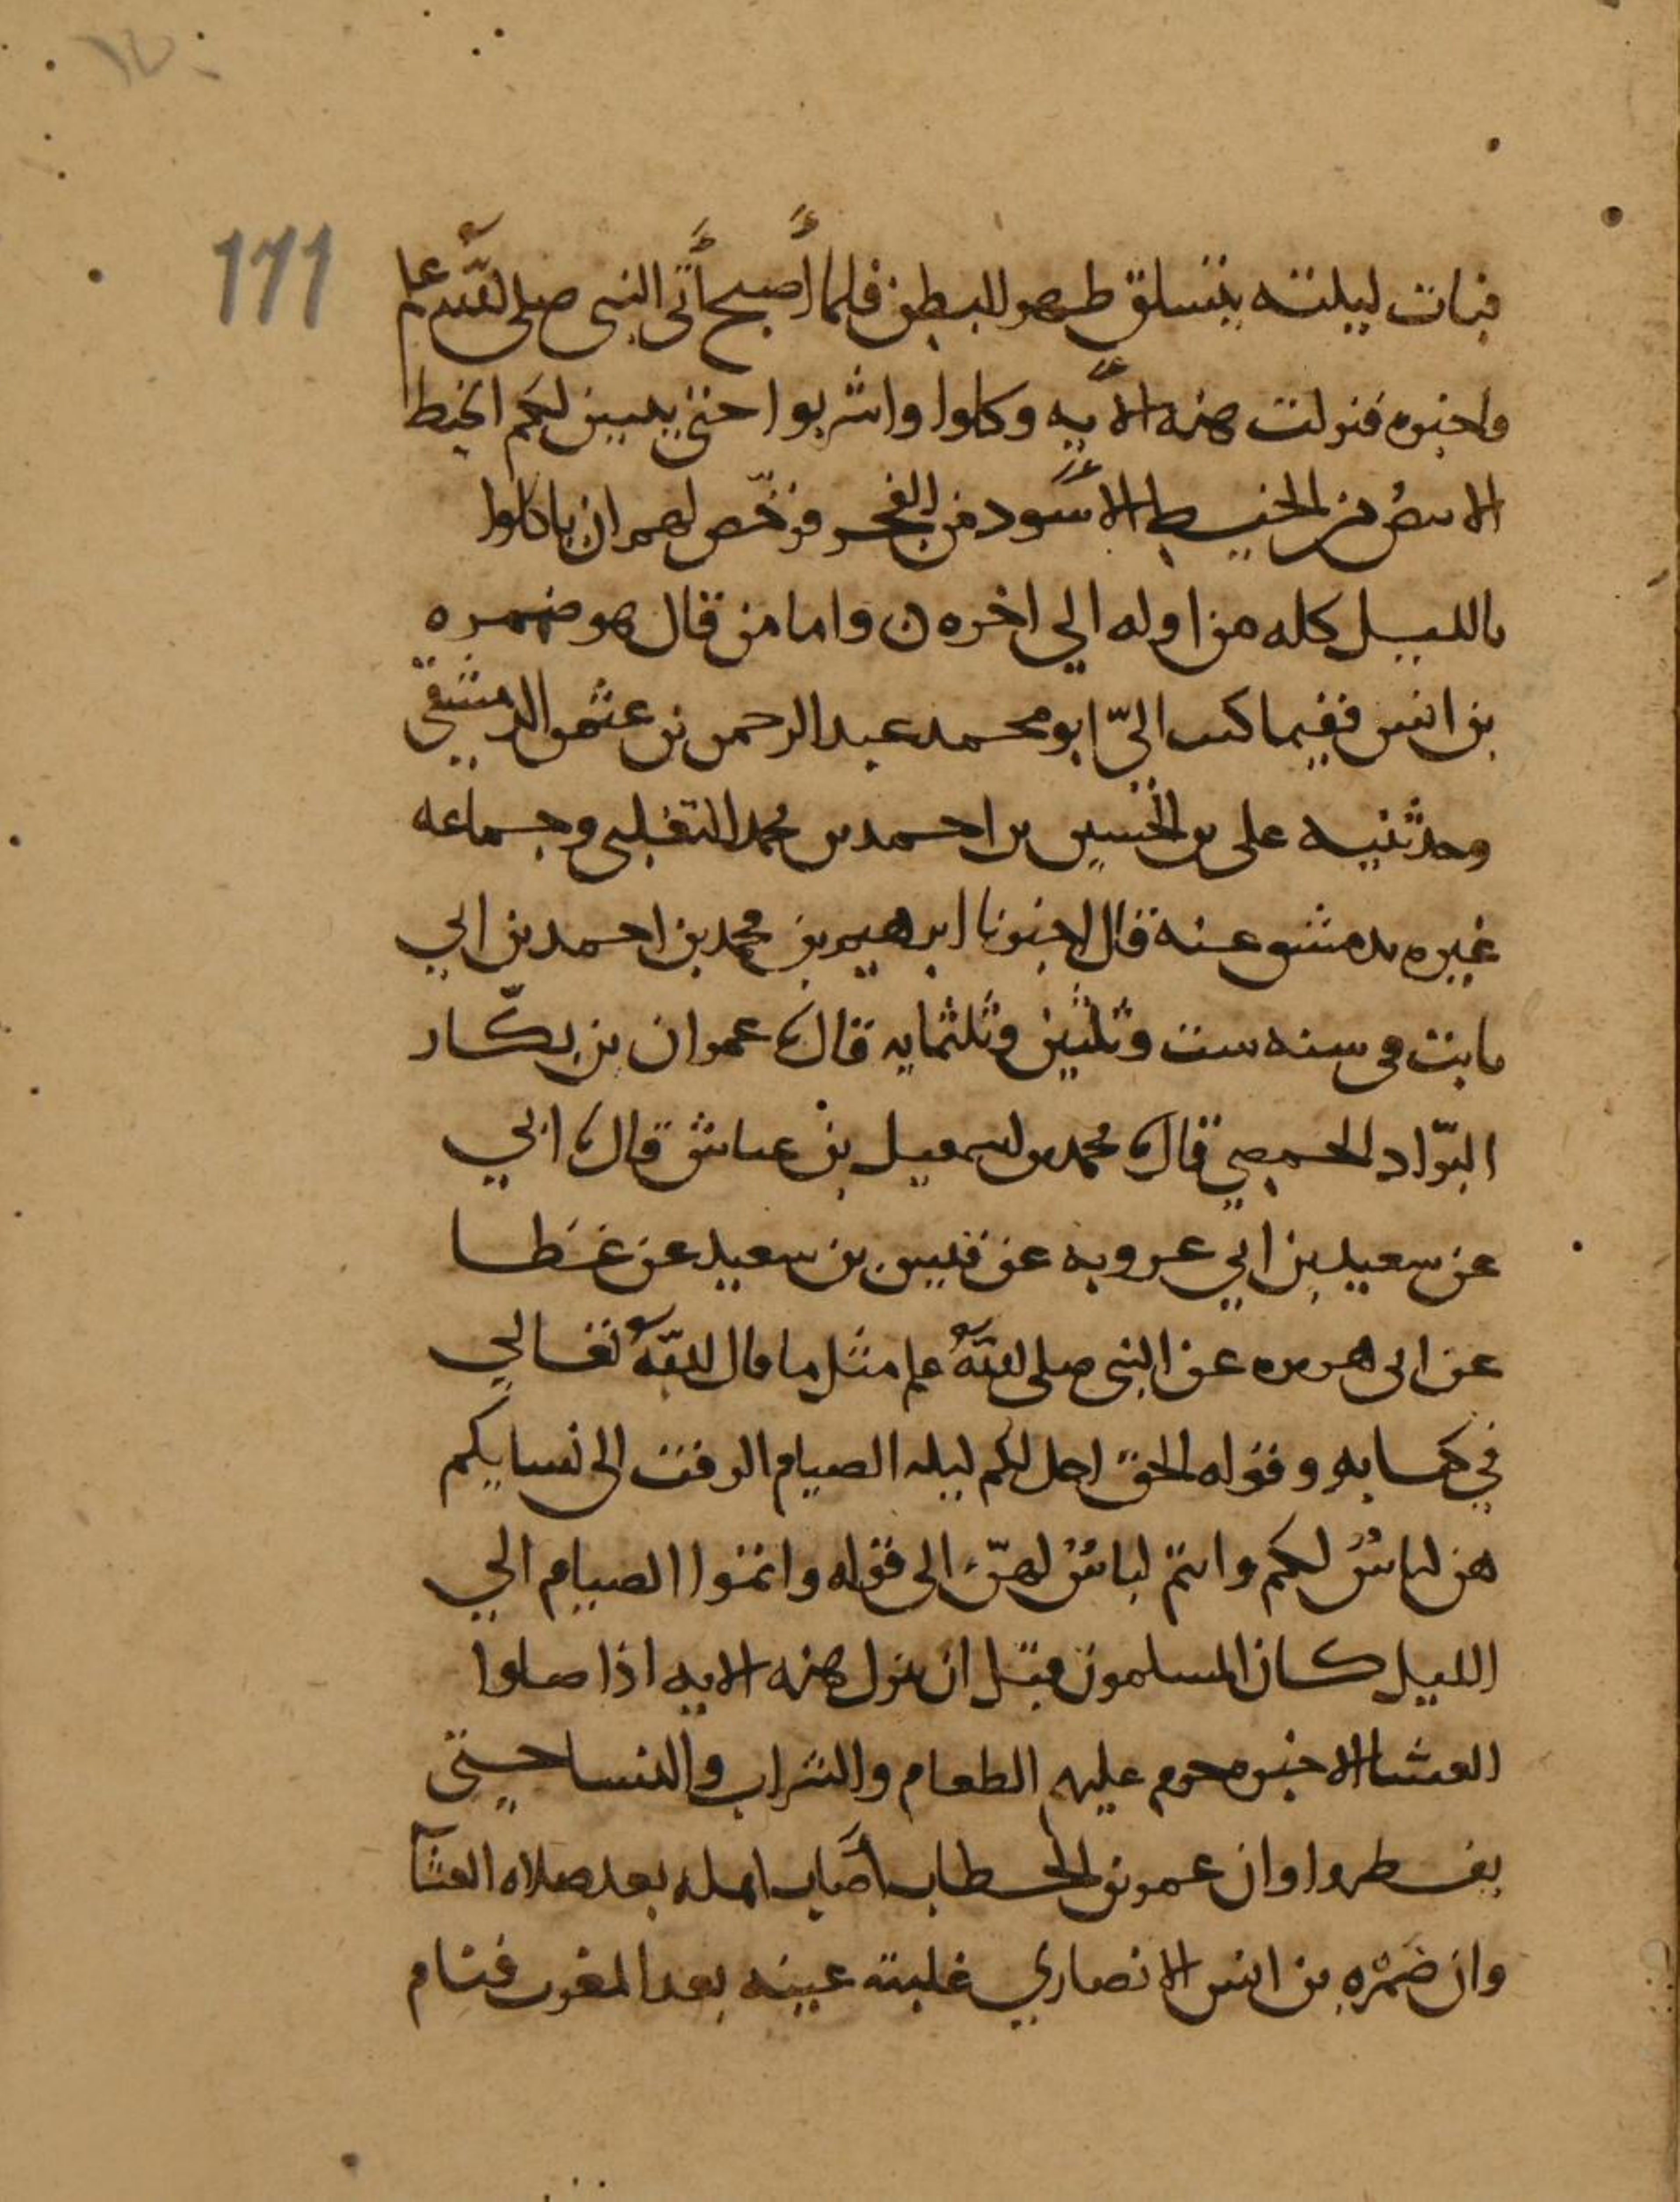 111
فبات ليلته يتسلق ظهر البطن فلما أصبح أتى النبي صلى الله علم
واخبره فنزلت هذه الآيه وكلوا واشربوا حتى يتبين لكم الخيط
الابيض من الخيط الأسود من الفجر فرخّص لهم ان ياكلوا
بالليل كله من اوله الي اخره ن واما من قال هو ضمره
بن انس ففيما كتب اليّ ابو محمد عبد الرحمن بن عثمن الدمشقي
وحدثنيه علي بن الحسين بن احمد بن محمد التغلبي وجماعه
غيره بدمشق عنه قال اخبرنا ابرهيم بن محمد بن احمد بن ابي
ثابت في سنه ست وثلثين وثلثمايه قال عمران بن بكّار
البرّاد الحمصي قال محمد بن اسمعيل بن عياش قال ابي
عن سعيد بن ابي عروبه عن قيس بن سعيد عن عطا
عن ابي هريره عن النبي صلى الله علم مثل ما قال الله تعالي
في كتابه وقوله الحق احل لكم ليله الصيام الرفث الى نسايكم
هن لباسٌ لكم وانتم لباسٌ لهنّ الى قوله واتموا الصيام الي
الليل كان المسلمون قبل ان تنزل هذه الايه اذا صلوا
العشا الاخره حرم عليهم الطعام والشراب والنسا حتى
يفطروا وان عمر بن الخطاب أصاب اهله بعد صلاه العشا
وان ضَمْره بن انس الانصاري غلبته عينه بعد المغرب فنام